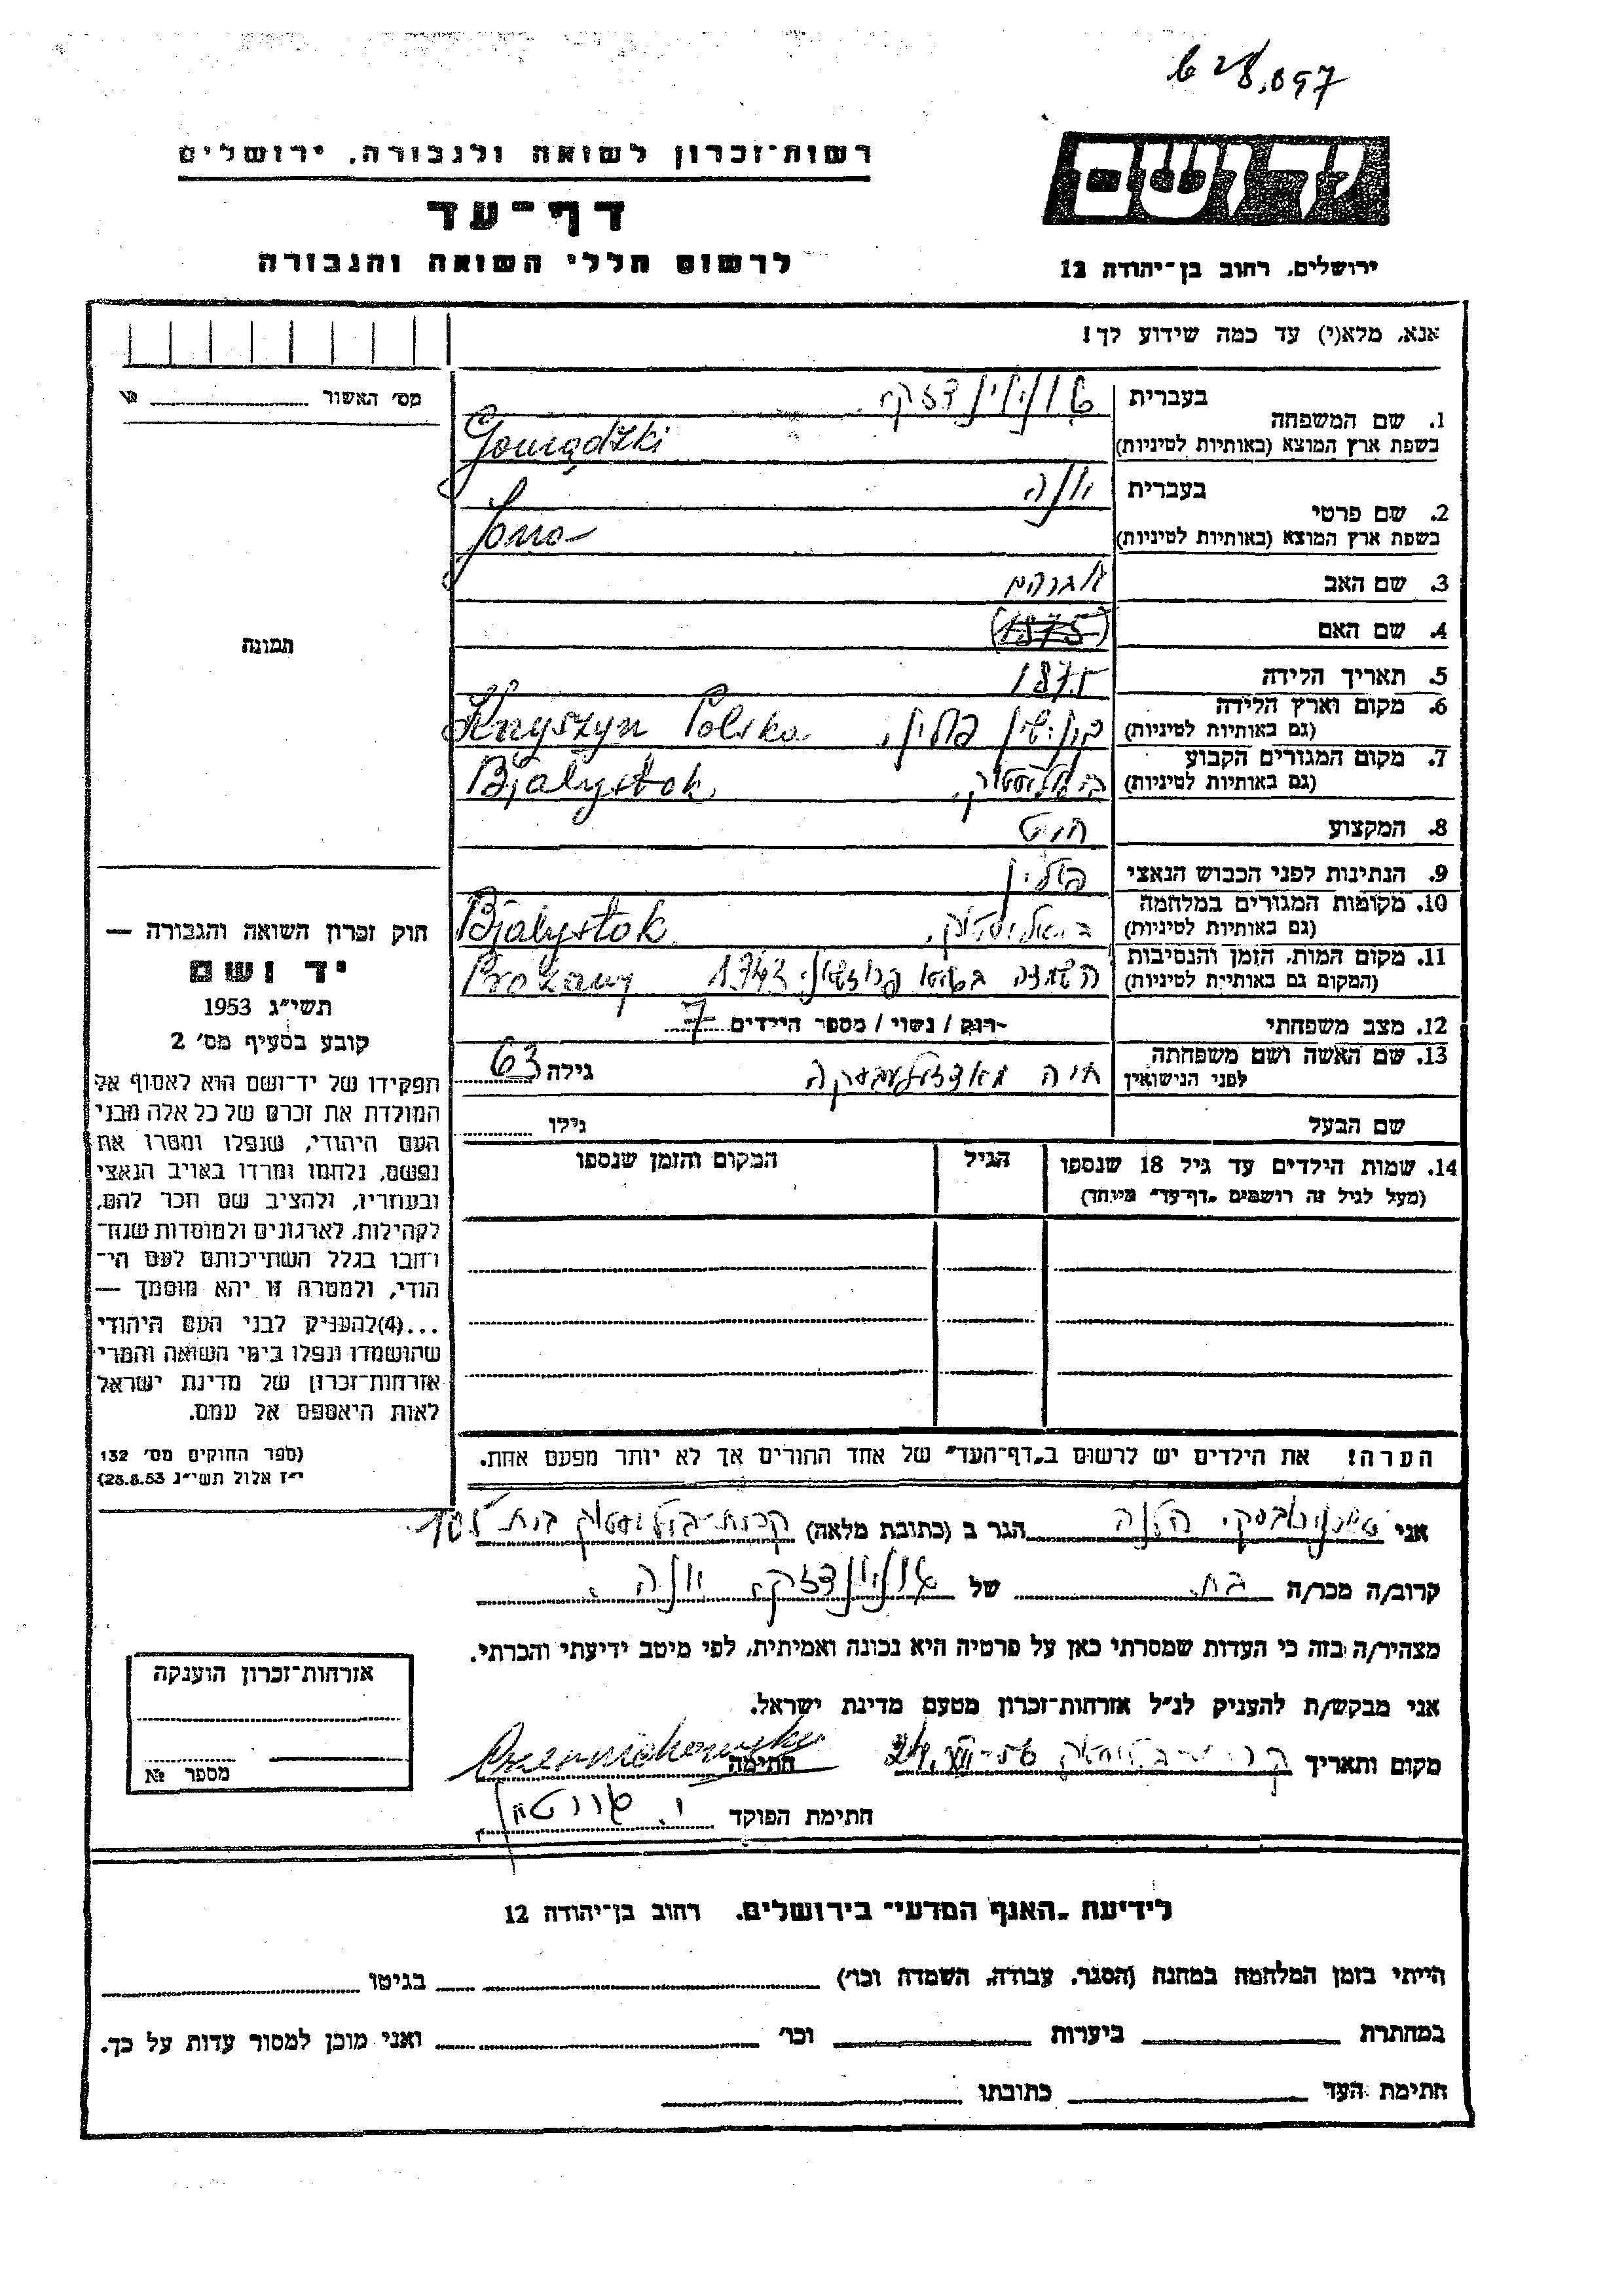 628.097
רשות־זכרון לשואה ולגבורה, ירושלים
יד ושם
דף־עד
לרשום חללי השואה והגבורה
ירושלים, רחוב בן־יהודה 12
אנא, מלא(י) עד כמה שידוע לך!
מס׳ האשור
1. שם המשפחה
בעברית
בשפת ארץ המוצא (באותיות לטיניות)
2. שם פרטי
בעברית יונה
בשפת ארץ המוצא (באותיות לטיניות) Jona
3. שם האב אברהם
4. שם האם (1875)
5. תאריך הלידה 1875
6. מקום וארץ הלידה
(גם באותיות לטיניות) פולין, Knyszyn Polska
7. מקום המגורים הקבוע
(גם באותיות לטיניות) ביאליסטוק, Bjalystok
8. המקצוע חיט
9. הנתינות לפני הכבוש הנאצי פולין
10. מקומות המגורים במלחמה
(גם באותיות לטיניות) ביאליסטוק, Bjalystok
11. מקום המות, הזמן והנסיבות
(המקום גם באותיית לטיניות) 1943
12. מצב משפחתי רוק / נשוי / מספר הילדים 7
13. שם האשה ושם משפחתה
לפני הנישואין חיה גילה 63
שם הבעל גילו
14. שמות הילדים עד גיל 18 שנספו
(מעל לגיל זה רושמים „דף־עד״ מיוחד)
הגיל
המקום והזמן שנספו
הערה! את הילדים יש לרשום ב„דף־העד״ של אחד ההורים אך לא יותר מפעם אחת.
תמונה
חוק זכרון השואה והגבורה —
יד ושם
תשי״ג 1953
קובע בסעיף מס׳ 2
תפקידו של יד־ושם הוא לאסוף אל
המולדת את זכרם של כל אלה מבני
העם היהודי, שנפלו ומסרו את
נפשם, נלחמו ומרדו באויב הנאצי
ובעוזריו, ולהציב שם וזכר להם,
לקהילות, לארגונים ולמוסדות שנח־
רחבו בגלל השתייכותם לעם הי־
הודי, ולמטרה זו יהא מוסמך —
...(4)להעניק לבני העם היהודי
שהושמדו ונפלו בימי השואה והמרי
אזרחות־זכרון של מדינת ישראל
לאות היאספם אל עמם.
(ספר החוקים מס׳ 132
י״ז אלול תשי״ג 28.8.53)
אני הגר ב (כתובת מלאה) קרית־ביליסטוק בית
קרוב/ה מכר/ה בת של יונה
מצהיר/ה בזה כי העדות שמסרתי כאן על פרטיה היא נכונה ואמיתית, לפי מיטב ידיעתי והכרתי.
אני מבקש/ת להעניק לנ״ל אזרחות־זכרון מטעם מדינת ישראל.
מקום ותאריך חתימה
חתימת הפוקד
אזרחות־זכרון הוענקה
מספר №
לידיעת „האגף המדעי״ בירושלים, רחוב בן־יהודה 12
הייתי בזמן המלחמה במחנה (הסגר, עבודה, השמדה וכו׳) בגיטו
במחתרת ביערות וכו׳ ואני מוכן למסור עדות על כך.
חתימת העד כתובתו